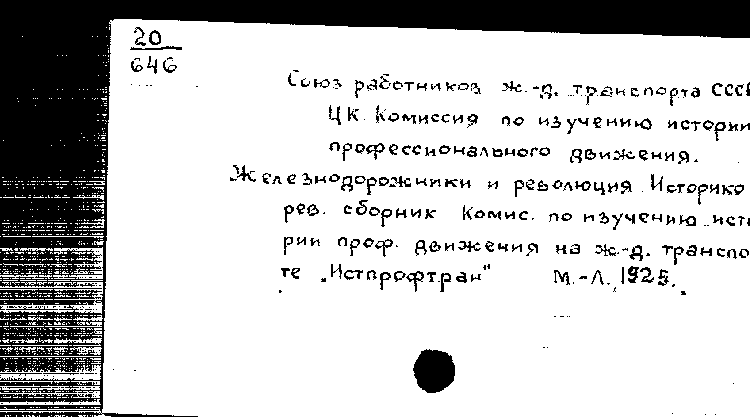 20
646
Союз работников ж.-д. транспорта СССР
ЦК Комиссия по изучению истории
профессионального движения.
Железнодорожники и революция Историко
рев. сборник Комис. по изучению исто
рии проф. движения на ж-д. транспо
те „Истпрофтран" М.-Л., 1925.